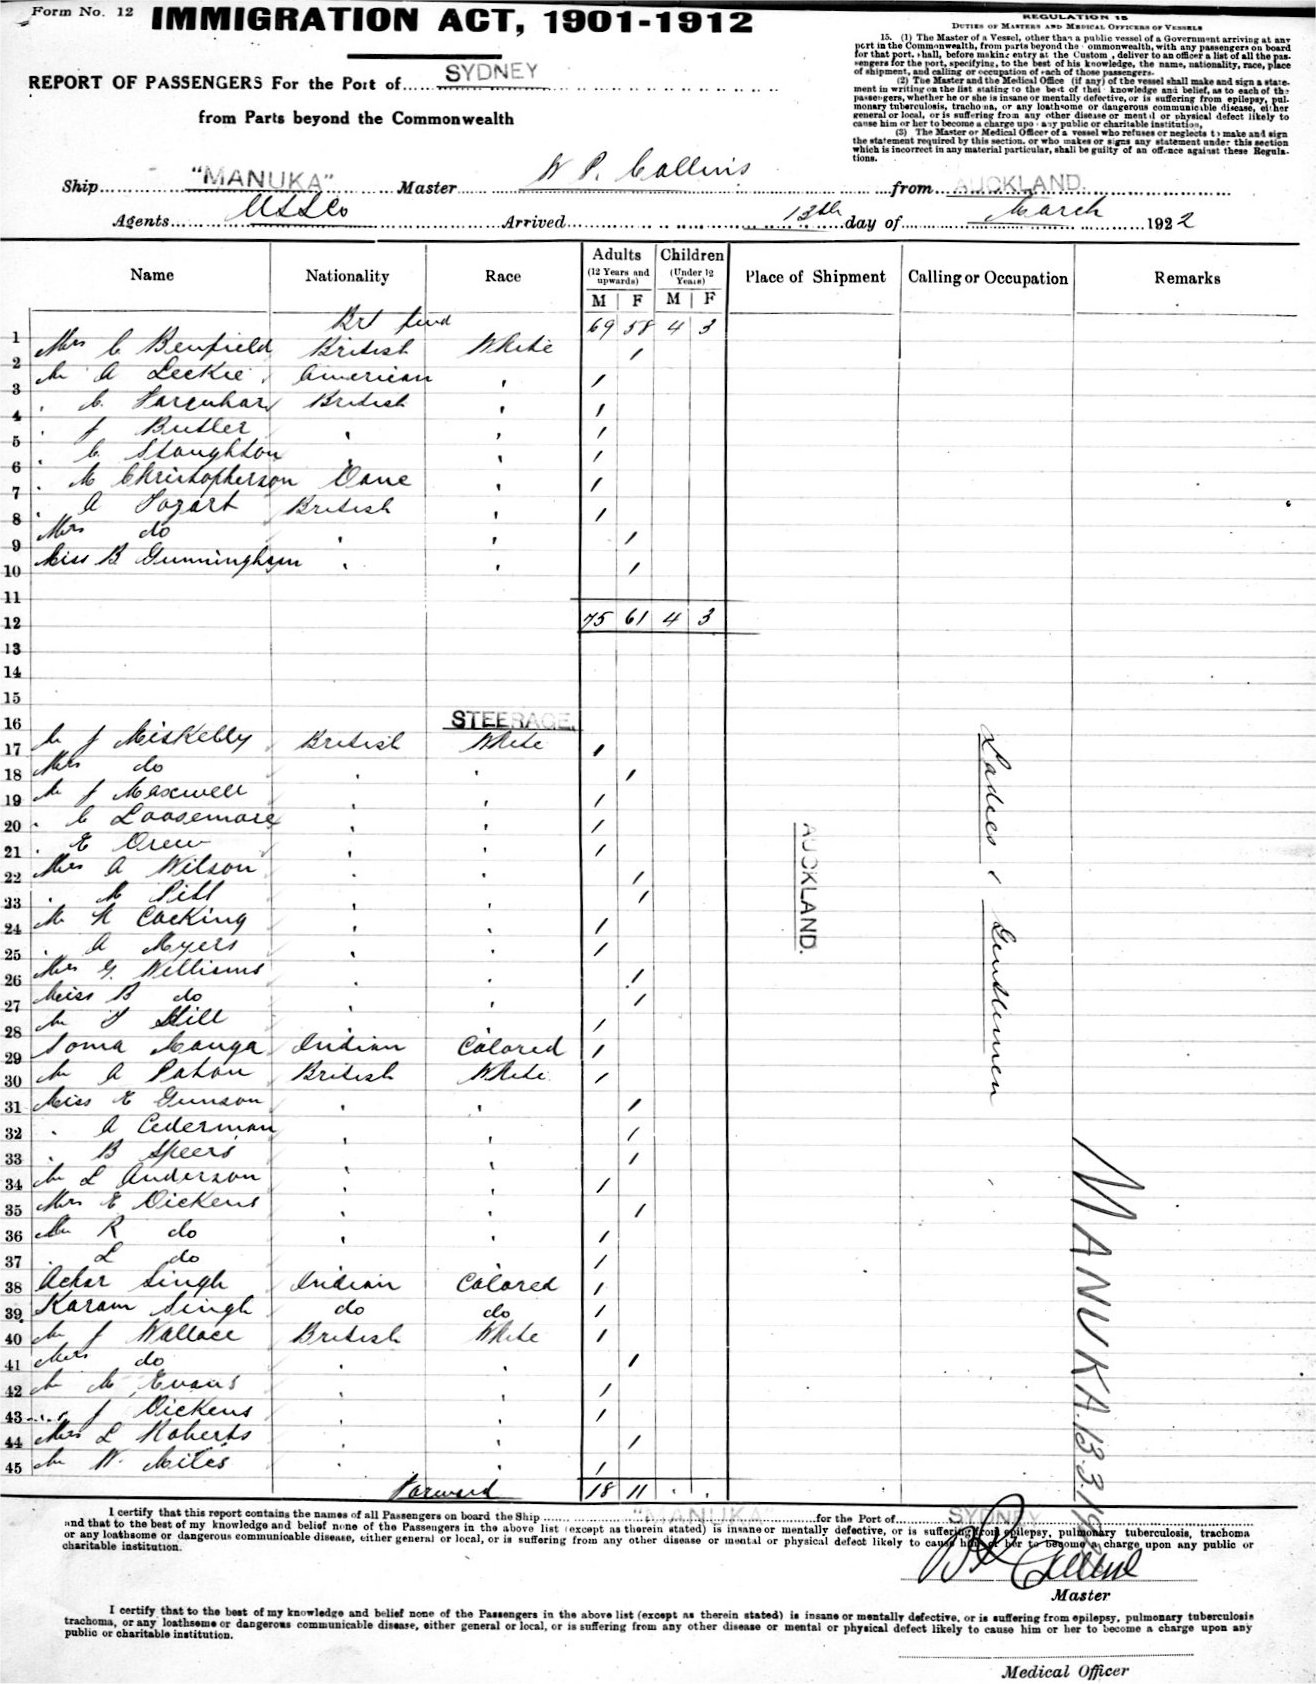 Form No. 12
IMMIGRATION ACT, 1901-1912
REPORT OF PASSENGERS For the Port of SYDNEY
from Parts beyond the Commonwealth
REGULATION 15
DUTIES OF MASTERS AND MEDICAL OFFICERS OF VESSELS
15. (1) The Master of a Vessel, other than a public vessel of a Government arriving at any
port in the Commonwealth, from parts beyond the ommonwealth, with any passengers on board
for that port, shall, before making entry at the Custom , deliver to an officer a list of all the pas-
sengers for the port, specifying, to the best of his knowledge, the name, nationality, race, place
of shipment, and calling or occupation of each of those passengers.
(2) The Master and the Medical Office (if any) of the vessel shall make and sign a state-
ment in writing on the list stating to the best of thei knowledge and belief, as to each of the
passengers, whether he or she is insane or mentally defective, or is suffering from epilepsy, pul-
monary tuberculosis, trachoma, or any loathsome or dangerous communicable disease, either
general or local, or is suffering from any other disease or mental or physical defect likely to
cause him or her to become a charge upon any public or charitable institution.
(3) The Master or Medical Officer of a vessel who refuses or neglects to make and sign
the statement required by this section, or who makes or signs any statement under this section
which is incorrect in any material particular, shall be guilty of an offence against these Regula-
tions.
Ship "MANUKA" Master W P. Collins from AUCKLAND.
Agents USSCo Arrived 13th day of March 1922
Name Nationality Race Adults (12 Years and upwards) M F Children (Under 12 Years) M F Place of Shipment Calling or Occupation Remarks
Brt fwd 69 58 4 3
1 Mrs C Benfield British White 1
2 Mr A Leckie American " 1
3 " C. Farquhar British " 1
4 " J Butler " " 1
5 " C Stoughton " " 1
6 " M Christopherson Dane " 1
7 " A Fogart British " 1
8 Mrs do " " 1
9 Miss B Gunningham " " 1
10
11
12 75 61 4 3
13
14
15
16 STEERAGE.
17 Mr J Miskelly British White 1
18 Mrs do " " 1
19 Mr J Maxwell " " 1
20 " C Loosemore " " 1
21 " E Drew " " 1
22 Mrs A Wilson " " 1
23 " M Pitt " " 1
24 Mr H Cocking " " 1
25 " A Myers " " 1
26 Mrs G. Williams " " 1
27 Miss B do " " 1
28 Mr T Hill " " 1
29 Soma Manga Indian Colored 1
30 Mr A Paton British White 1
31 Miss E Gunson " " 1
32 " A Cederman " " 1
33 " B Speers " " 1
34 Mr L Anderson " " 1
35 Mrs E Dickens " " 1
36 Mr R do " " 1
37 " L do " " 1
38 Achar Singh Indian Colored 1
39 Karam Singh do do 1
40 Mr J Wallace British White 1
41 Mrs do " " 1
42 Mr M Evans " " 1
43 " J Dickens " " 1
44 Mrs L Roberts " " 1
45 Mr W. Miles " " 1
Forward 18 11 . .
AUCKLAND.
Ladies & Gentlemen
MANUKA 13.3.19
I certify that this report contains the names of all Passengers on board the Ship "MANUKA" for the Port of SYDNEY
and that to the best of my knowledge and belief none of the Passengers in the above list (except as therein stated) is insane or mentally defective, or is suffering from epilepsy, pulmonary tuberculosis, trachoma
or any loathsome or dangerous communicable disease, either general or local, or is suffering from any other disease or mental or physical defect likely to cause him or her to become a charge upon any public or
charitable institution.
W P Collins
Master
I certify that to the best of my knowledge and belief none of the Passengers in the above list (except as therein stated) is insane or mentally defective, or is suffering from epilepsy, pulmonary tuberculosis
trachoma, or any loathsome or dangerous communicable disease, either general or local, or is suffering from any other disease or mental or physical defect likely to cause him or her to become a charge upon any
public or charitable institution.
Medical Officer